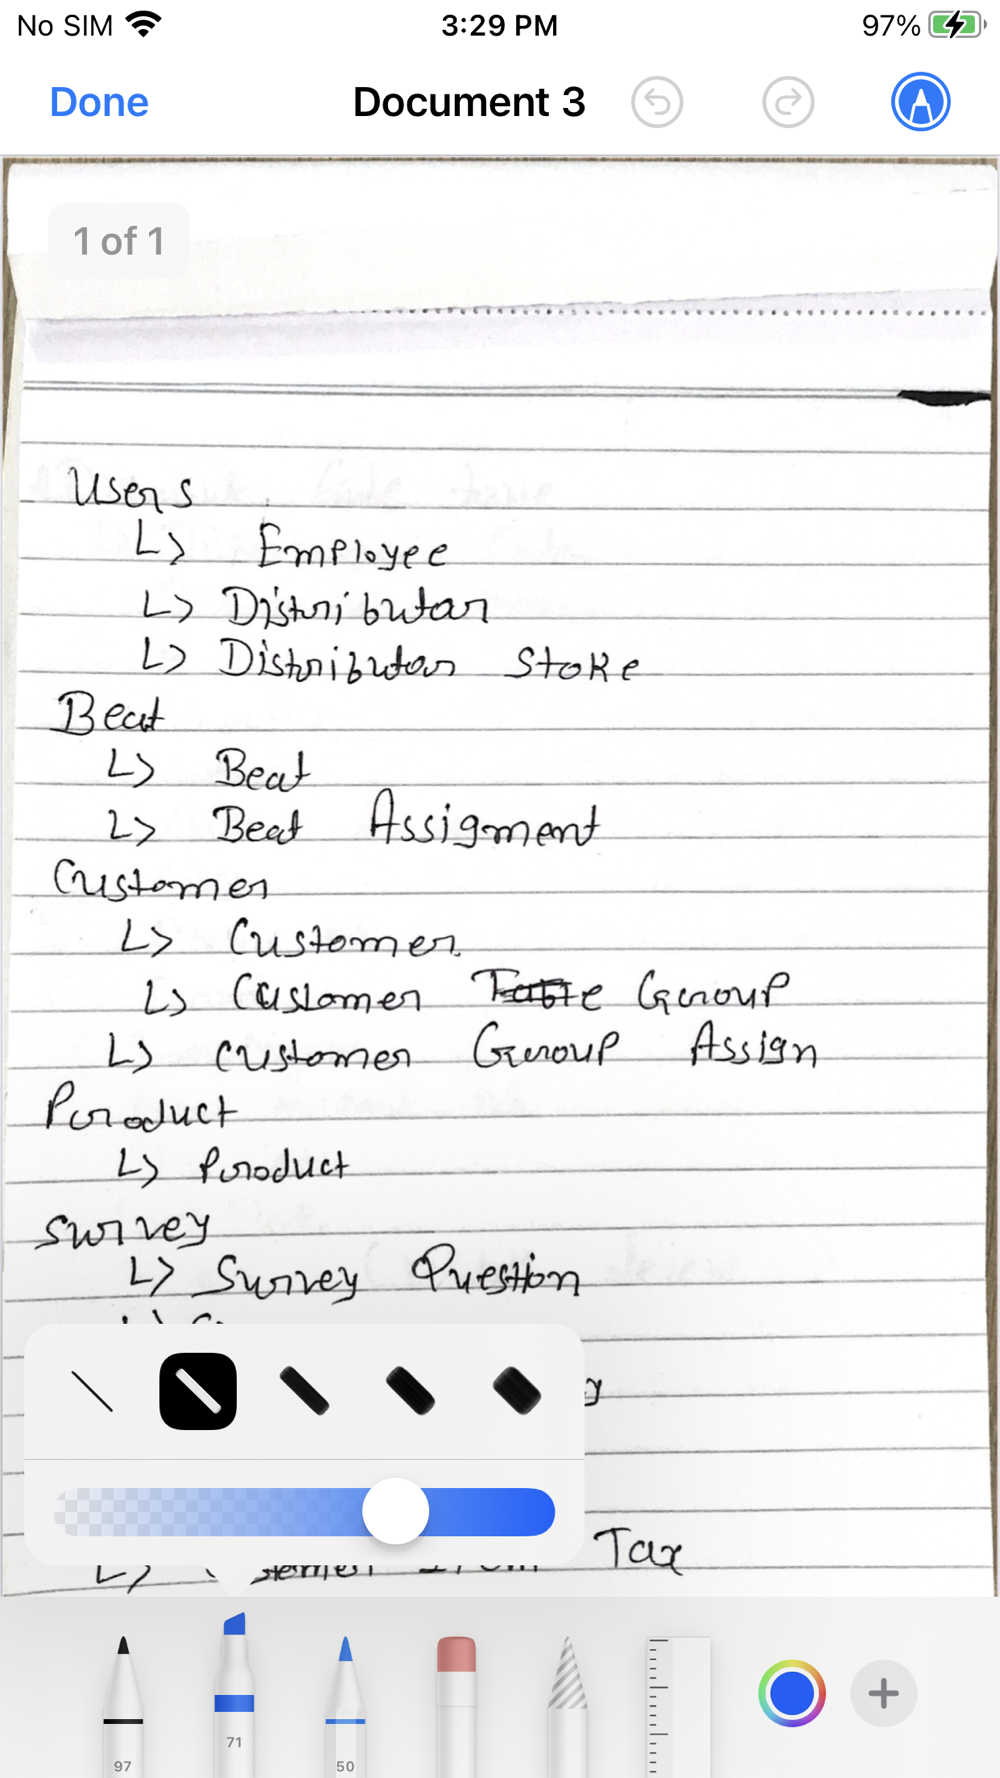 No SIM 3:29 PM 97%
Done Document 3
1 of 1
Users
↳ Employee
↳ Distributor
↳ Distributor Stoke
Beat
↳ Beat
↳ Beat Assigment
Customer
↳ Customer
↳ Customer Group
↳ Customer Group Assign
Product
↳ Product
Survey
↳ Survey Question
Tax
97
71
50